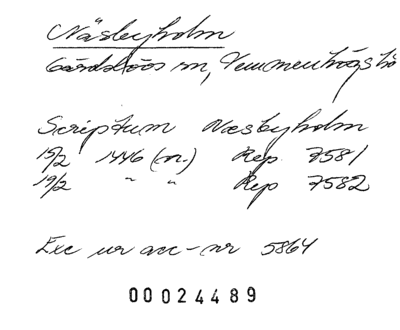 Näsbyholm
Gärdslövs sn, Vemmenhögs hd
Scriptum Næsbyholm
15/2 1446 (m.) Rep. 7581
19/2 " " Rep 7582
Exc ur acc-nr 5864
00024489